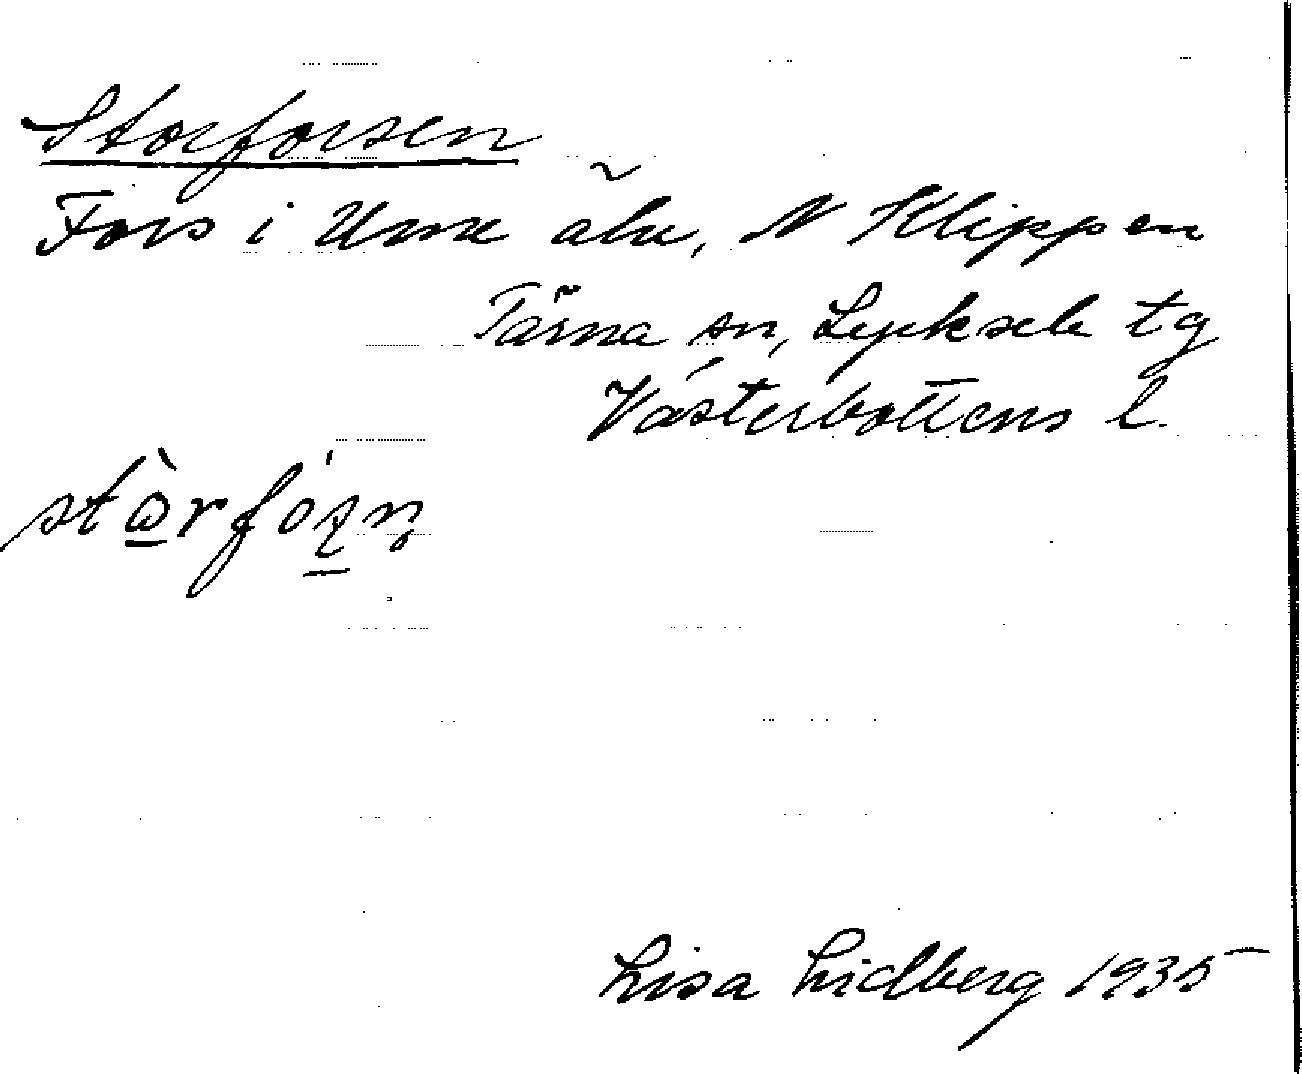 Storforsen
Fors i Ume älv, N Klippen
Tärna sn, Lycksele tg
Västerbottens l.
Lisa Lidberg 1935